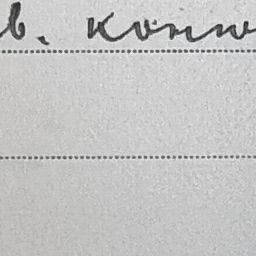 b. Konw